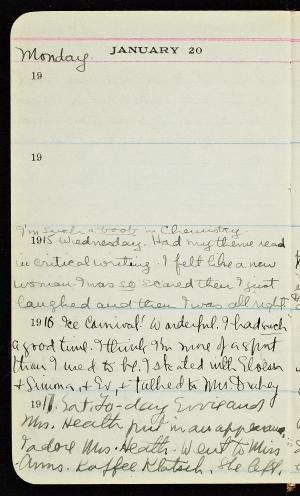 Monday. JANUARY 20
19
19
I'm such a boob in Chemistry.
1915 Wednesday. Had my theme read
in critical writing. I felt like a new
woman. I was so scared then I just
laughed and then I was all right
1916 Ice Carnival! Wonderful. I had such
a good time. I think I'm more of a sport
than I used to be. I skated with
+ + Ev, + talked to Mrs
1917. Sat. To-day and
Mrs. Heath put in an appearance.
I adore Mrs. Heath. Went to Miss
Anns. Kaffee Klatsch. She left